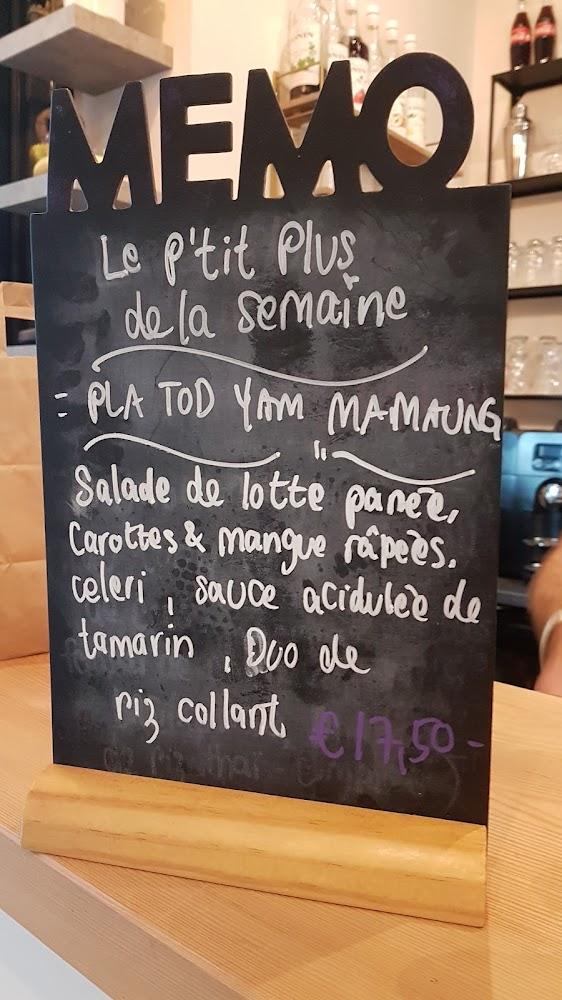 MEMO
Le p'tit Plus
de la semaine
= PLA TOD YAM MAMAUNG
"
Salade de lotte panée,
Carottes & mangue râpées.
celeri, sauce acidulée de
tamarin, Duo de
riz collant €17,50-